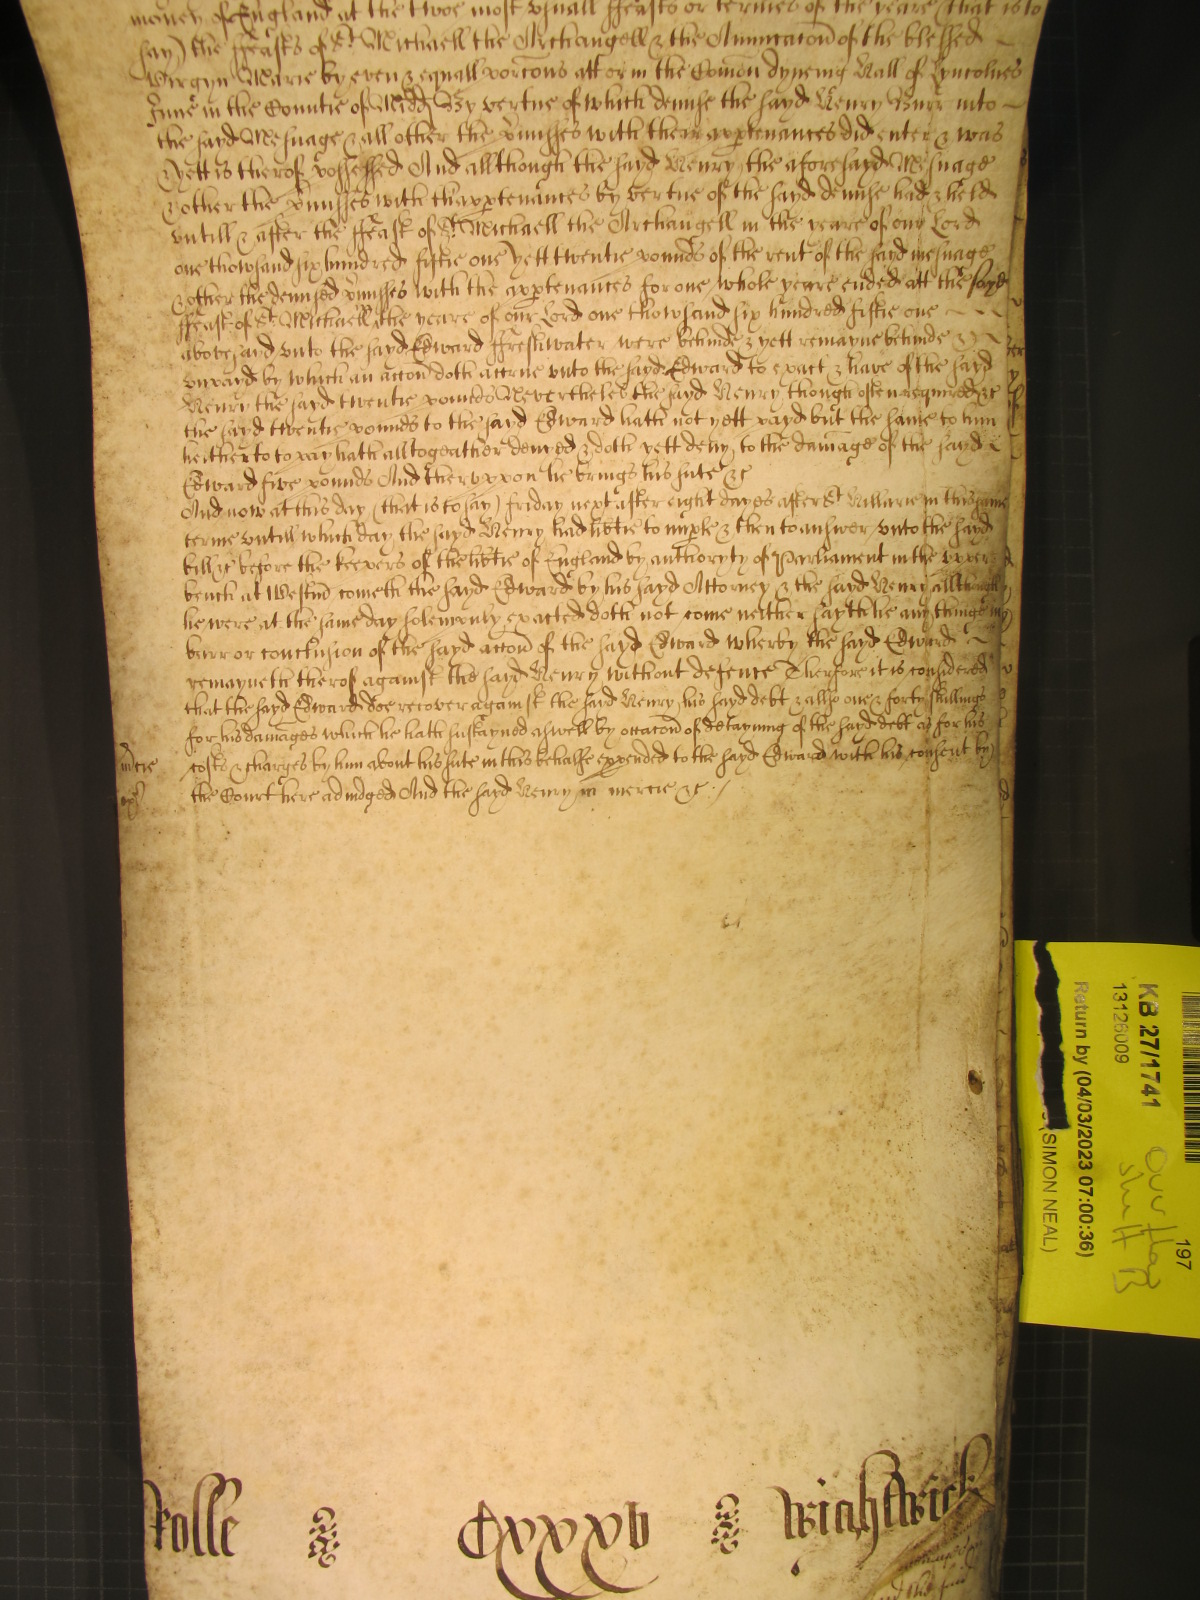 money of England at the twoe most vsuall ffeasts or termes of the yeare (that is to
say) the ffeasts of St Michaell the Archangell & the Annuncacon of the blessed
Virgyn Marie by even & equall porcons att or in the Comon dyneing Hall of Lyncolnes
Inne in the Countie of Midd By vertue of which demise the sayd Henry Burr into
the sayd Mesuage & all other the pmisses with their apptenances did enter & was
& yett is therof possessed And allthough the sayd Henry the aforesayd Mesuage
& other the pmisses with thapptenances by vertue of the sayd demise had & held
vntill & after the ffeast of St Michaell the Archangell in the yeare of our Lord
one thowsand six hundred fiftie one yett twentie pounds of the rent of the sayd mesuage
& other the demised pmisses with the apptenances for one whole yeare ended att the sayd
ffeast of St Michaell the yeare of our Lord one thowsand six hundred fiftie one
abovesayd vnto the sayd Edward ffreshwater were behinde & yett remayne behinde &
vnpayd by which an accon doth accrue vnto the sayd Edward to exact & have of the sayd
Henry the sayd twentie pounds Neverthelès the sayd Henry though often required &c
the sayd twentie pounds to the sayd Edward hath not yett payd but the same to him
hitherto to pay hath alltogeather denyed & doth yett deny to the damage of the sayd
Edward five pounds And therevpon he brings his sute &c
And now at this day (that is to say) friday next after eight dayes after St Hillarie in this same
terme vntill which day the sayd Henry had libtie to imple & then to answer vnto the sayd
bill &c before the keepers of the libtie of England by authoryty of Parliament in the vpper
bench at Westm cometh the sayd Edward by his sayd Attorney & the sayd Henry allthough
he were at the same day solemnly exacted doth not come neither sayth he any thinge in
barr or conclusion of the sayd accon of the sayd Edward wherby the sayd Edward
remayneth therof against the sayd Henry without defence Therfore it is considered
that the sayd Edward doe recover against the said Henry his sayd debt & allso one & forty shillings
for his damages which he hath sustayned aswell by occacon of detayning of the sayd debt as for his
costs & charges by him about his sute in this behalfe expended to the sayd Edward with his consent by
mcie
the Court here adiudged And the sayd Henry in mercie &c
Rolle Cxxxv Wightwick
KB 27/1741
13126009
Return by (04/03/2023 07:00:36)
(SIMON NEAL)
197